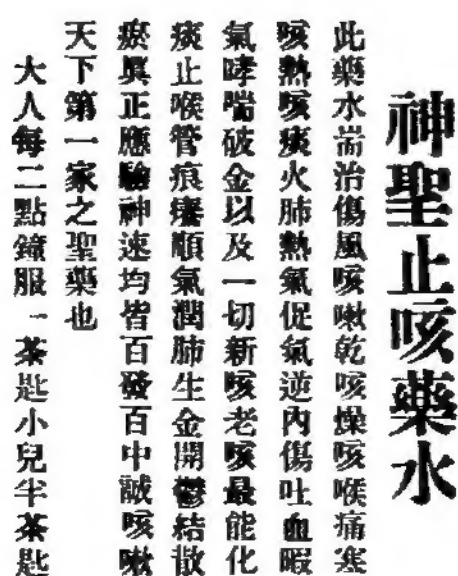 神聖止咳藥水
此藥水耑治傷風咳嗽乾咳燥咳喉痛塞
咳熱咳痰火肺熱氣促氣逆內傷吐血嘏
氣哮喘破金以及一切新咳老咳最能化
痰止喉管痕癢順氣潤肺生金開鬱結散
瘀真正應驗神速均皆百發百中誠咳嗽
天下第一家之聖藥也
大人每二點鐘服一茶匙小兒半茶匙